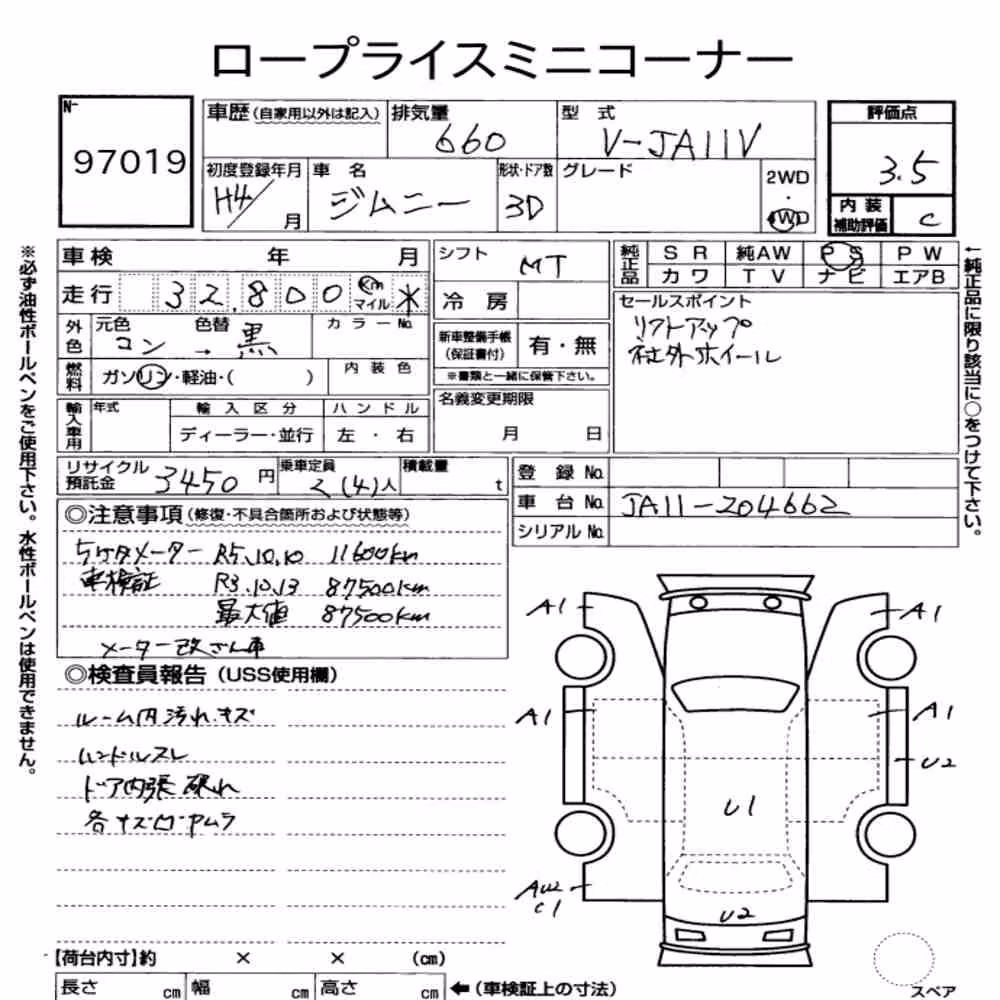 ロープライスミニコーナー
N-
97019
車歴(自家用以外は記入) 排気量 660 型 式 V-JA11V
評価点 3.5
初度登録年月 H4/ 月 車 名 ジムニー 形状・ドア数 3D グレード 2WD ・ 4WD
内装補助評価 C
車検 年 月
シフト MT
純正品 SR 純AW PS PW
カワ TV ナビ エアB
走行 32,800 km マイル *
冷 房
セールスポイント
リフトアップ
社外ホイール
外色 元色 コン 色替 → 黒 カラーNo.
新車整備手帳(保証書付) 有・無
※書類と一緒に保管下さい。
燃料 ガソリン・軽油・( ) 内装色
名義変更期限
月 日
輸入車用 年式 輸入区分 ハンドル
ディーラー・並行 左・右
リサイクル預託金 3450 円 乗車定員 2(4)人 積載量 t
登 録 No.
車 台 No. JA11-204662
シリアル No.
◎注意事項(修復・不具合箇所および状態等)
5ケタメーター R5.10.10 11600km
車検証 R3.10.13 87500km
最大値 87500km
メーター改ざん車
◎検査員報告(USS使用欄)
ルーム内汚れ.キズ
ハンドルスレ
ドア内張 破れ
各キズ凹.ヤムラ
A1 A1
A1 A1
U2
U1
AW2
C1
U2
【荷台内寸】約 × × (cm)
長さ cm 幅 cm 高さ cm ←(車検証上の寸法)
スペア
※必ず油性ボールペンをご使用下さい。水性ボールペンは使用できません。
←純正品に限り該当に○をつけて下さい。